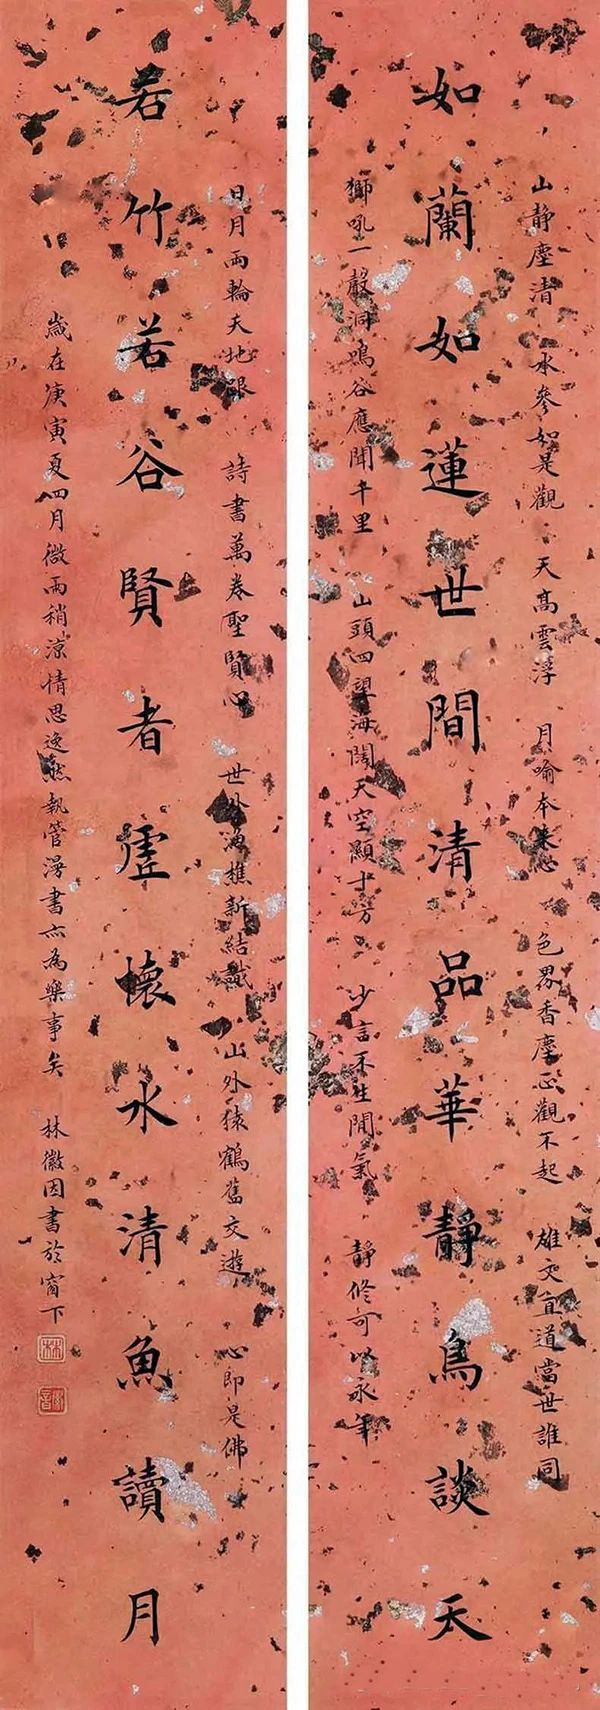 山静塵清 水參如是觀 天高雲浮 月喻本來心 色界香塵正觀不起 雄文直道當世誰同
如蘭如蓮世間清品華靜鳥談天
獅吼一聲洞鳴谷應聞千里 山頭四望海闊天空顯十方 少言不生閒氣 靜修可以永年
日月兩輪天地眼 詩書萬卷聖賢心 世外漁樵新結識 山外猿鶴舊交遊 心即是佛
若竹若谷賢者虛懷水清魚讀月
歲在庚寅夏四月微雨稍涼情思逸然執管漫書亦為樂事矣 林徽因書於窗下
林